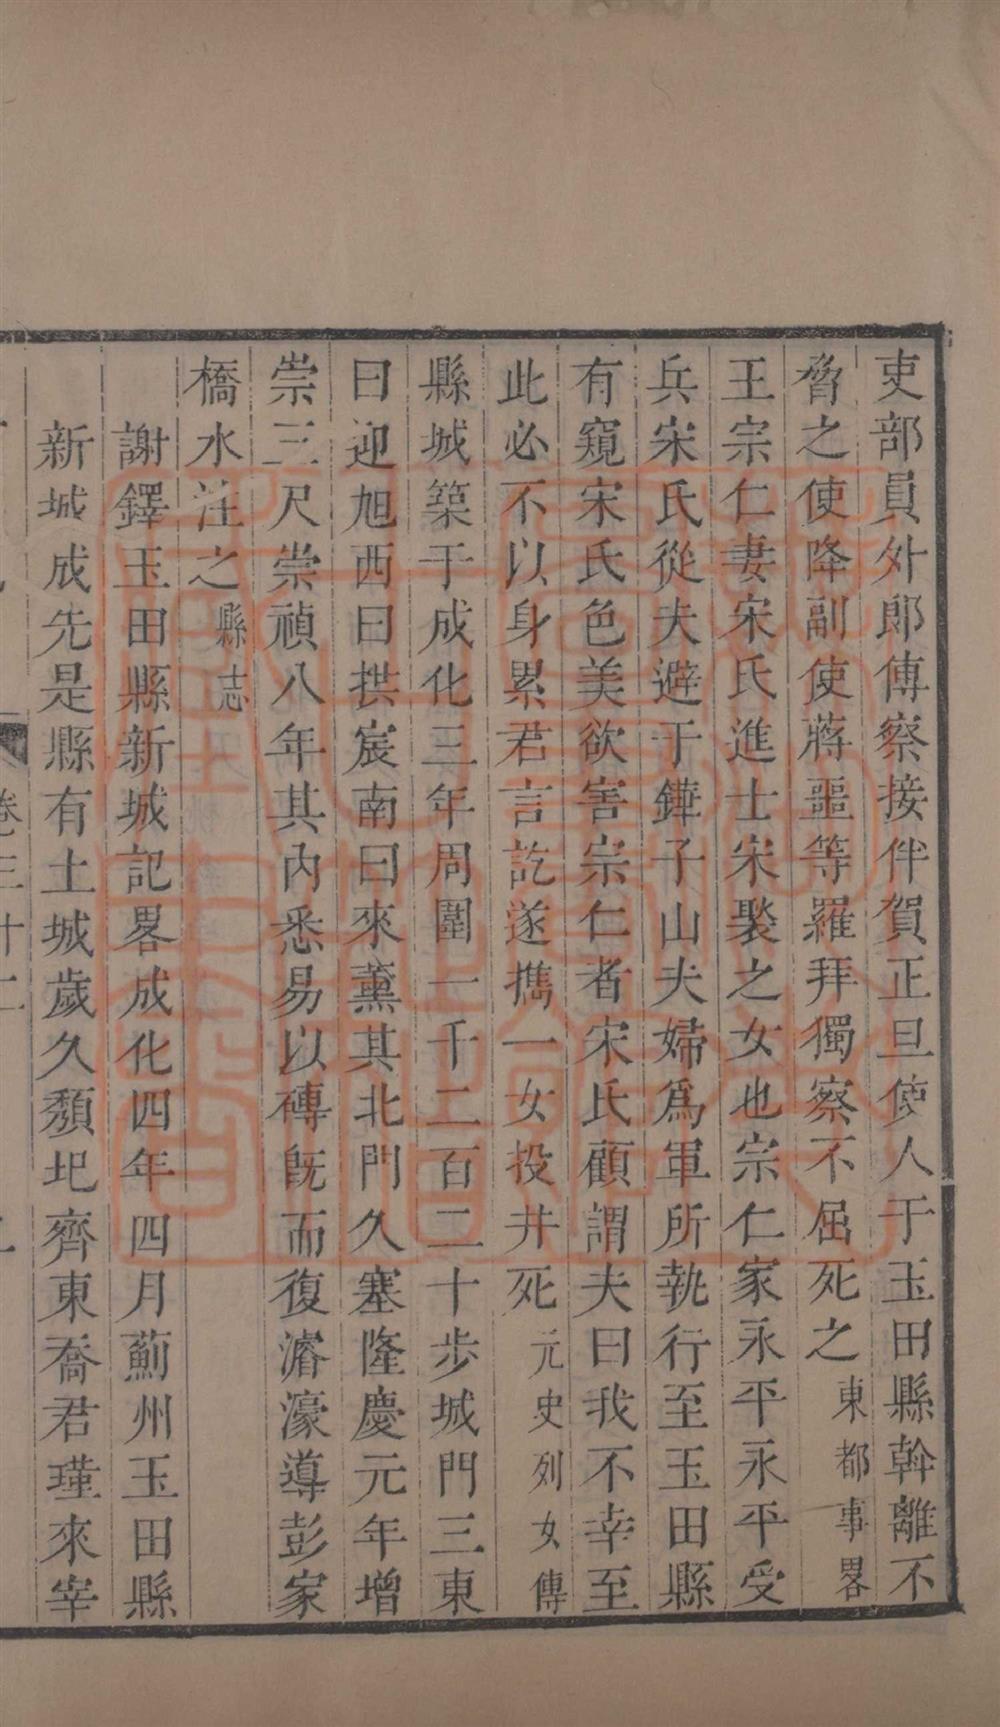 吏部員外郎傅察接伴賀正旦使人于玉田縣幹離不
脅之使降副使蔣噩等羅拜獨察不屈死之東都事畧
王宗仁妻宋氏進士宋褧之女也宗仁家永平永平受
兵宋氏從夫避于鏵子山夫婦爲軍所執行至玉田縣
有窺宋氏色美欲害宗仁者宋氏顧謂夫曰我不幸至
此必不以身累君言訖遂攜一女投井死元史列女傳
縣城築于成化三年周圍一千二百二十步城門三東
曰迎旭西曰拱宸南曰來薰其北門久塞隆慶元年增
崇三尺崇禎八年其內悉易以磚旣而復濬濠導彭家
橋水注之縣志
謝鐸玉田縣新城記畧成化四年四月薊州玉田縣
新城成先是縣有土城歲久頽圯齊東喬君瑾來宰
卷三十二